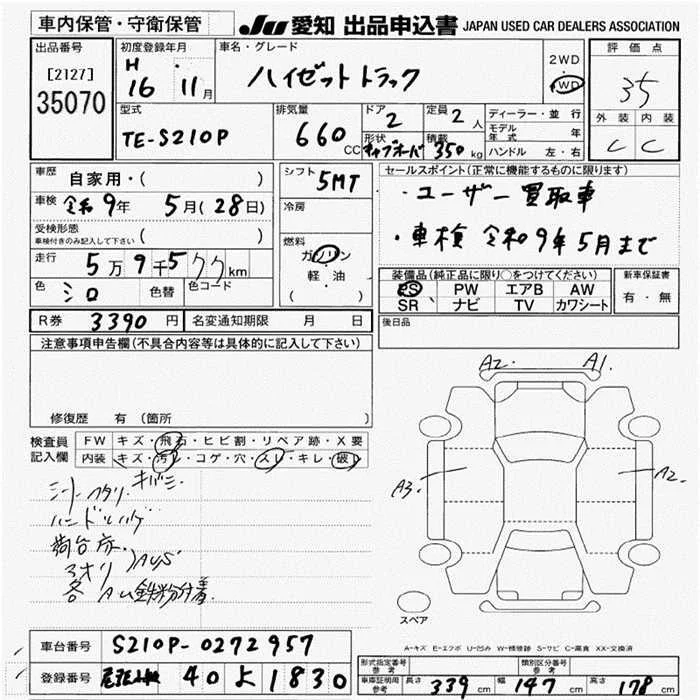 車内保管・守衛保管
JU 愛知 出品申込書 JAPAN USED CAR DEALERS ASSOCIATION
出品番号
[2127]
35070
初度登録年月
H 16. 11月
車名・グレード
ハイゼットトラック
2WD
・
4WD
評価点
3.5
外装 内装
C C
型式
TE-S210P
排気量
660 CC
ドア
2
形状
定員
2人
積載
350 kg
ディーラー・並行
モデル年式 年
ハンドル 左・右
車歴
自家用・( )
車検 令和9年 5月(28日)
受検形態
車検付きのみ記入して下さい ( )
走行 5万9千5クク km
色 シロ 色替 色コード
シフト 5MT
冷房
燃料
ガソリン
軽・油
( )
セールスポイント(正常に機能するものに限ります)
・ユーザー買取車
・車検 令和9年5月まで
装備品(純正品に限り○をつけてください)
PS PW エアB AW
SR ナビ TV カワシート
新車保証書
有・無
R券 3390 円 名変通知期限 月 日
後日品
注意事項申告欄(不具合内容等は具体的に記入して下さい)
修復歴 有(箇所 )
検査員記入欄
FW キズ・飛石・ヒビ割・リペア跡・X要
内装 キズ・汚レ・コゲ・穴・スレ・キレ・破レ
シートヘタリ キバミ
ハンドルハゲ
荷台
アオリ
各 鉄粉付着
A2. A1.
A3. A2.
スペア
A-キズ E-エクボ U-凹み W-補修跡 S-サビ C-腐食 XX-交換済
車台番号 S210P-0272957
登録番号 尾張小牧 40 よ 1830
形式指定番号 参考 類別区分番号 参考
車庫証明用 参考 長さ 339 cm 幅 147 cm 高さ 178 cm